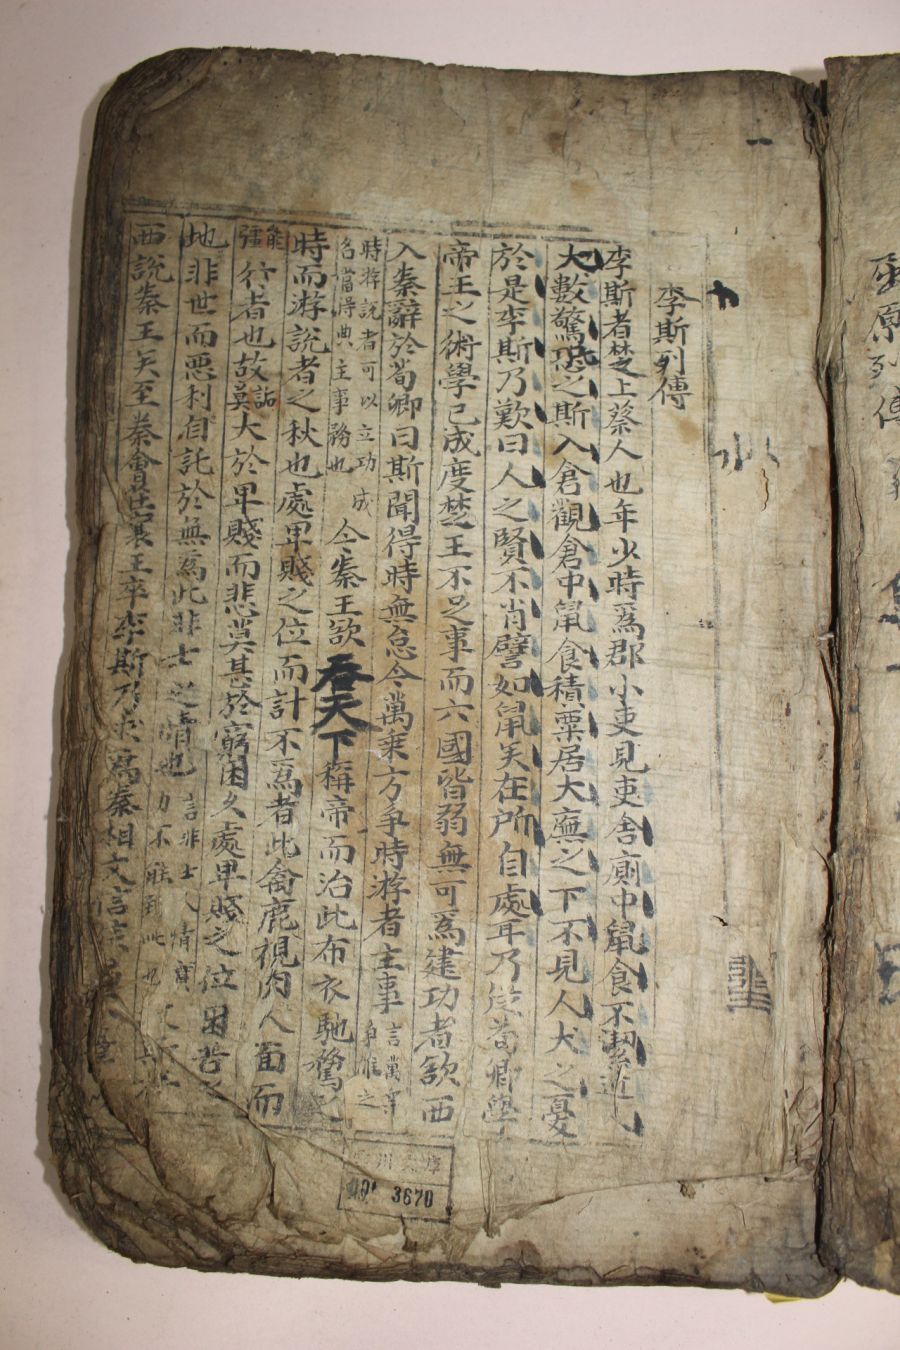 李斯列傳
李斯者楚上蔡人也年少時爲郡小吏見吏舍廁中鼠食不潔近人
犬數驚恐之斯入倉觀倉中鼠食積粟居大廡之下不見人犬之憂
於是李斯乃歎曰人之賢不肖譬如鼠矣在所自處耳乃從荀卿學
帝王之術學已成度楚王不足事而六國皆弱無可爲建功者欲西
入秦辭於荀卿曰斯聞得時無怠今萬乘方爭時游者主事言萬乘爭雄之
時游說者可以立功成名當得典主事務也今秦王欲吞天下稱帝而治此布衣馳騖之
時而游說者之秋也處卑賤之位而計不爲者此禽鹿視肉人面而
能彊行者也故詬莫大於卑賤而悲莫甚於窮困久處卑賤之位困苦之
地非世而惡利自託於無爲此非士之情也言非士人情實力不能致此也
西說秦王矣至秦會莊襄王卒李斯乃求爲秦相文信
原列傳
3670